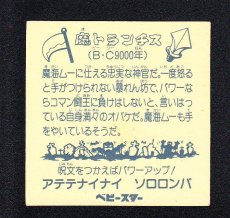 魔トランチス
(B・C9000年)
魔海ムーに仕える忠実な神官だ。一度怒
ると手がつけられない暴れん坊で、パワーな
らコマン闘王に負けはしないと、言いはっ
ている自身満々のオバケだ。魔海ムーも手
をやいているそうだ。
呪文をつかえばパワーアップ!
アテテナイナイ ソロロンパ
ベビースター